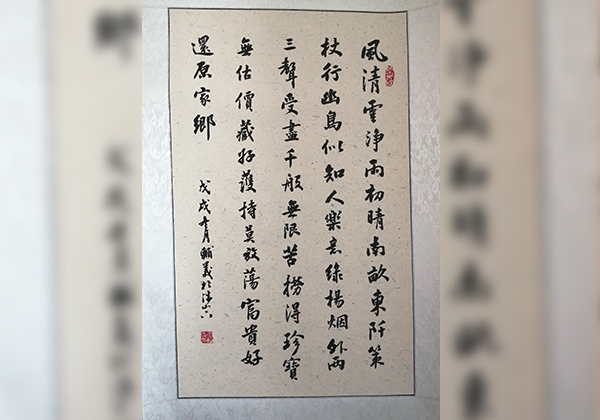 風清雲淨雨初晴南畝東阡策
杖行幽鳥似知人樂意綠楊烟外兩
三聲受盡千般無限苦撈得珍寶
無估價藏好護持莫放蕩富貴好
還原家鄉
戊戌十月輔義於